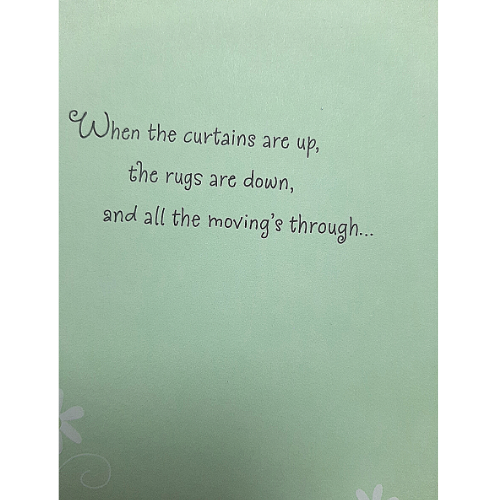 When the curtains are up,
the rugs are down,
and all the moving's through...